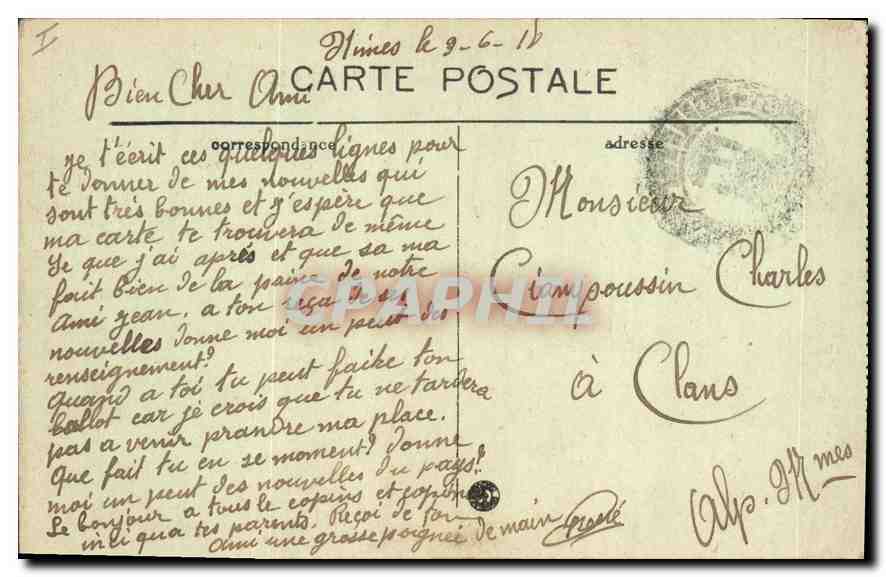 I
Nimes le 9-6-18
CARTE POSTALE
Bien Cher Ami
correspondance
adresse
je t'éérit ces quelques lignes pour
te donner de mes nouvelles qui
sont très bonnes et j'éspère que
ma carte te trouvera de même
Je que j'ai aprés et que sa ma
fait bien de la paine de notre
Ami jean, a ton reçu de ses
nouvelles donne moi un peut des
renseignement?
Quand a toi tu peut faike ton
ballot car je crois que tu ne tardera
pas a venir prandre ma place.
Que fait tu en se moment? donne
moi un peut des nouvelles du pays?
Le bonjour a tous le copains et copine
inci qua tes parents. Reçoi de ton
Ami une grosse poignée de main
Monsieur
Ciampoussin Charles
à Clans
Alp. Mmes
CPAPHIL